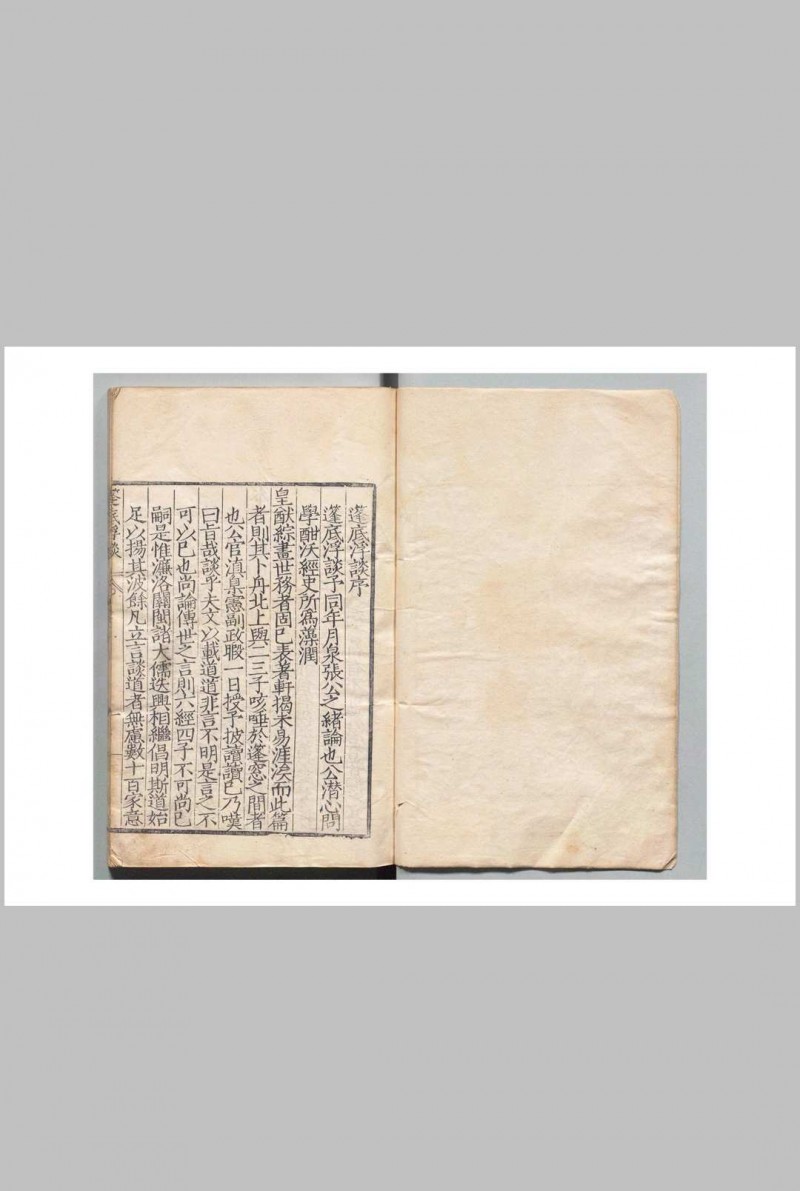 蓬底浮談序
蓬底浮談予同年月泉張公之緒論也公潜心問
學酣沃經史所爲藻潤
皇猷綜畫世務者固已表著軒揭未易涯涘而此篇
者則其卜舟北上與二三子咳唾於蓬窓之間者
也公官滇臬憲副政暇一日授予披讀讀已乃嘆
曰旨哉談乎夫文以載道道非言不明是言之不
可以已也尚論傳世之言則六經四子不可尚已
嗣是惟濂洛關閩諸大儒迭興相繼倡明斯道始
足以揚其波餘凡立言談道者無慮數十百家意
蓬底浮談